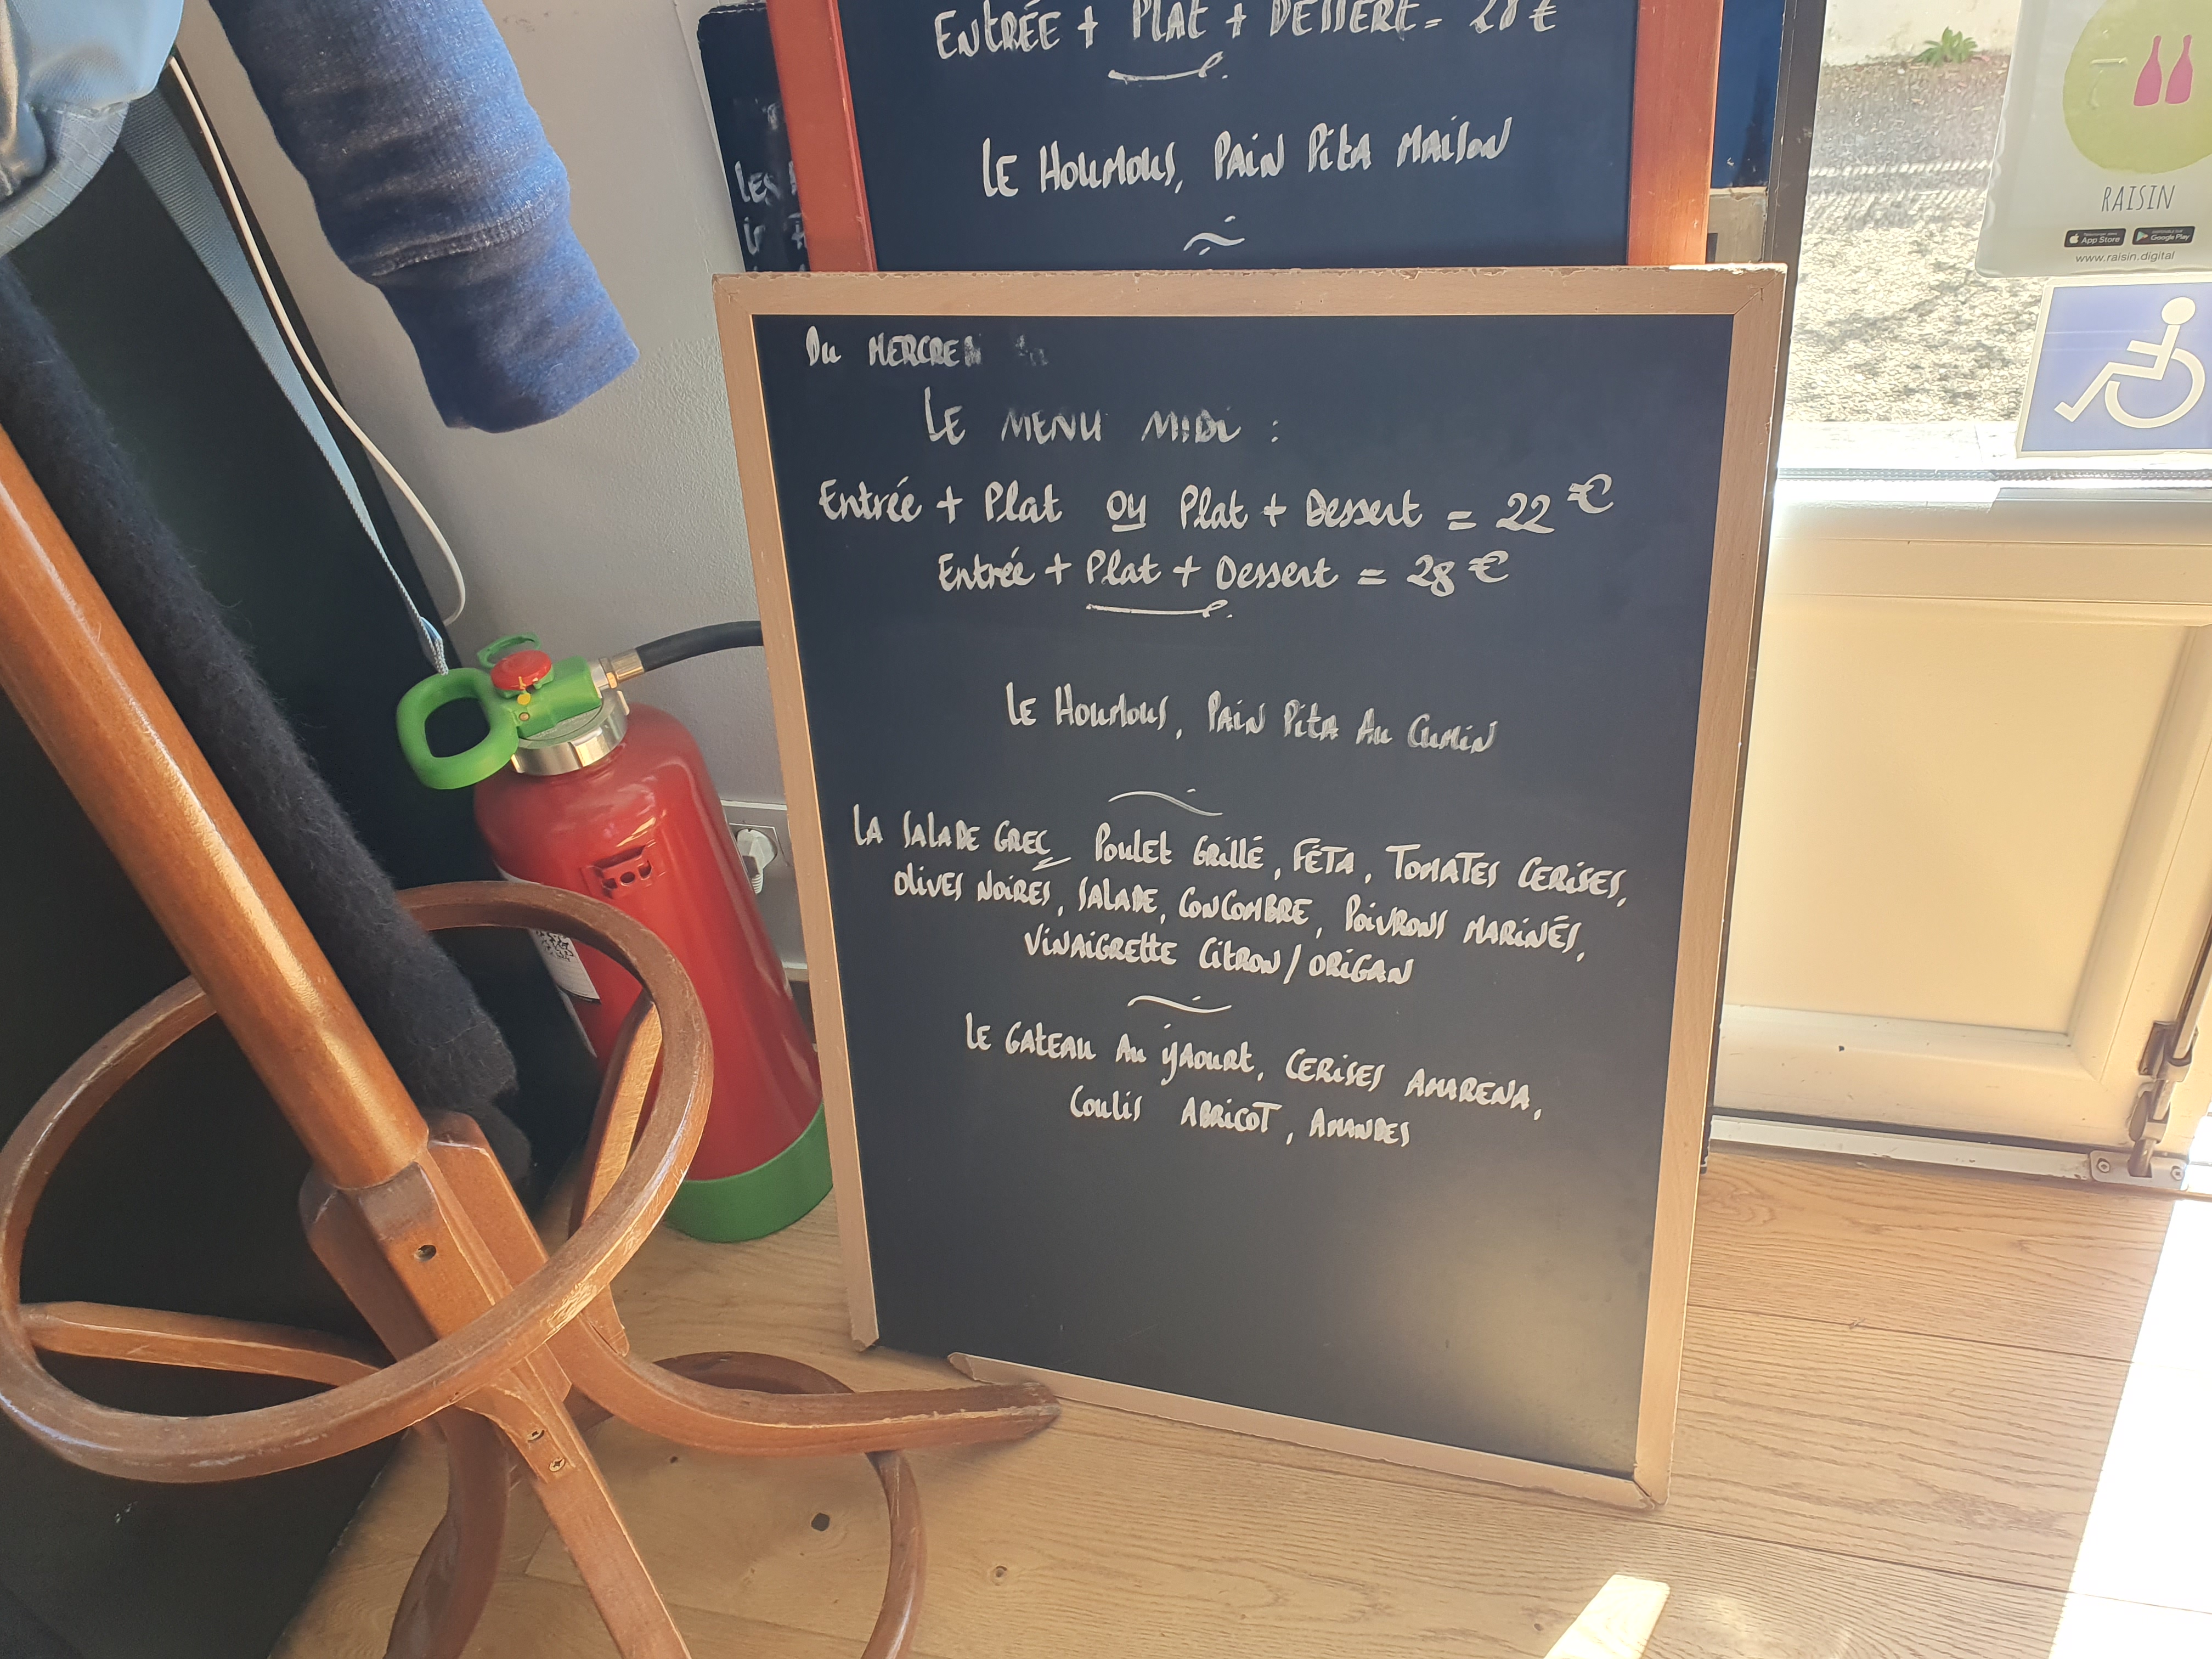 ENTRÉE + PLAT + DESSERT = 28 €
LE HOUMOUS, PAIN PITA MAISON
LES
Du MERCRE
LE MENU MIDI :
Entrée + Plat ou Plat + Dessert = 22 €
Entrée + Plat + Dessert = 28 €
LE HOUMOUS, PAIN PITA AU CUMIN
LA SALADE GREC POULET GRILLÉ, FÉTA, TOMATES CERISES,
OLIVES NOIRES, SALADE, CONCOMBRE, POIVRONS MARINÉS,
VINAIGRETTE CITRON / ORIGAN
LE GATEAU AU YAOURT, CERISES AMARENA,
COULIS ABRICOT, AMANDES
RAISIN
App Store
Google Play
www.raisin.digital